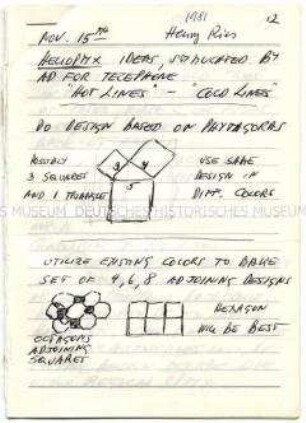 1981 12
NOV. 15TH Henry Ries
HELIOPTIX IDEAS, STIMULATED BY
AD FOR TELEPHONE
"HOT LINES" - "COLD LINES"
DO DESIGN BASED ON PHYTAGORAS
POSSIBLY
3 SQUARES
AND 1 TRIANGLE
3 4
5
USE SAME
DESIGN IN
DIFF. COLORS
MUSEUM DEUTSCHES HISTORISCHES MUSEUM DEUTS
UTILIZE EXISTING COLORS TO MAKE
SET OF 4, 6, 8 ADJOINING DESIGNS
OCTAGONS
ADJOINING
SQUARES
HEXAGON
WILL BE BEST